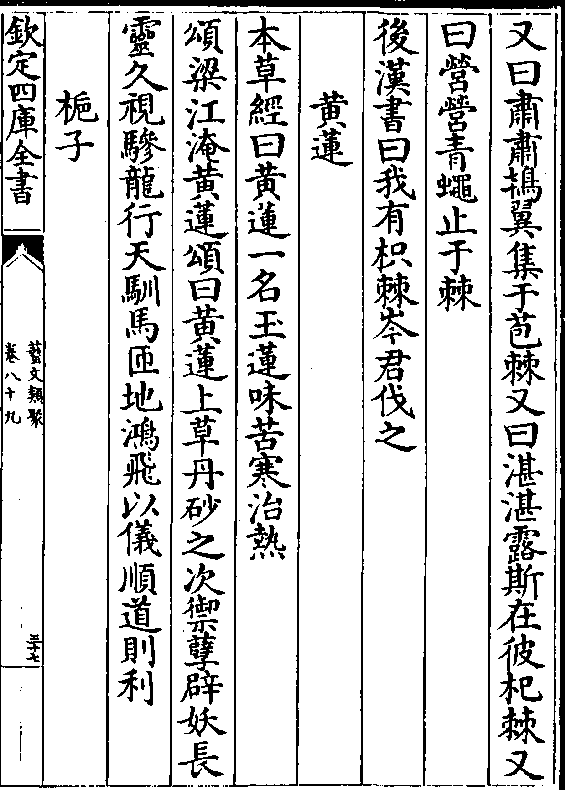 又曰肅肅鴇翼集于苞棘又曰湛湛露斯在彼杞棘又
曰營營青蠅止于棘
後漢書曰我有枳棘岑君伐之
黄蓮
本草經曰黄蓮一名王蓮味苦寒治熱
頌梁江淹黄蓮頌曰黄蓮上草丹砂之次禦孽辟妖長
靈久視驂龍行天馴馬匝地鴻飛以儀順道則利
梔子
欽定四庫全書
藝文類聚
卷八十九
三十七